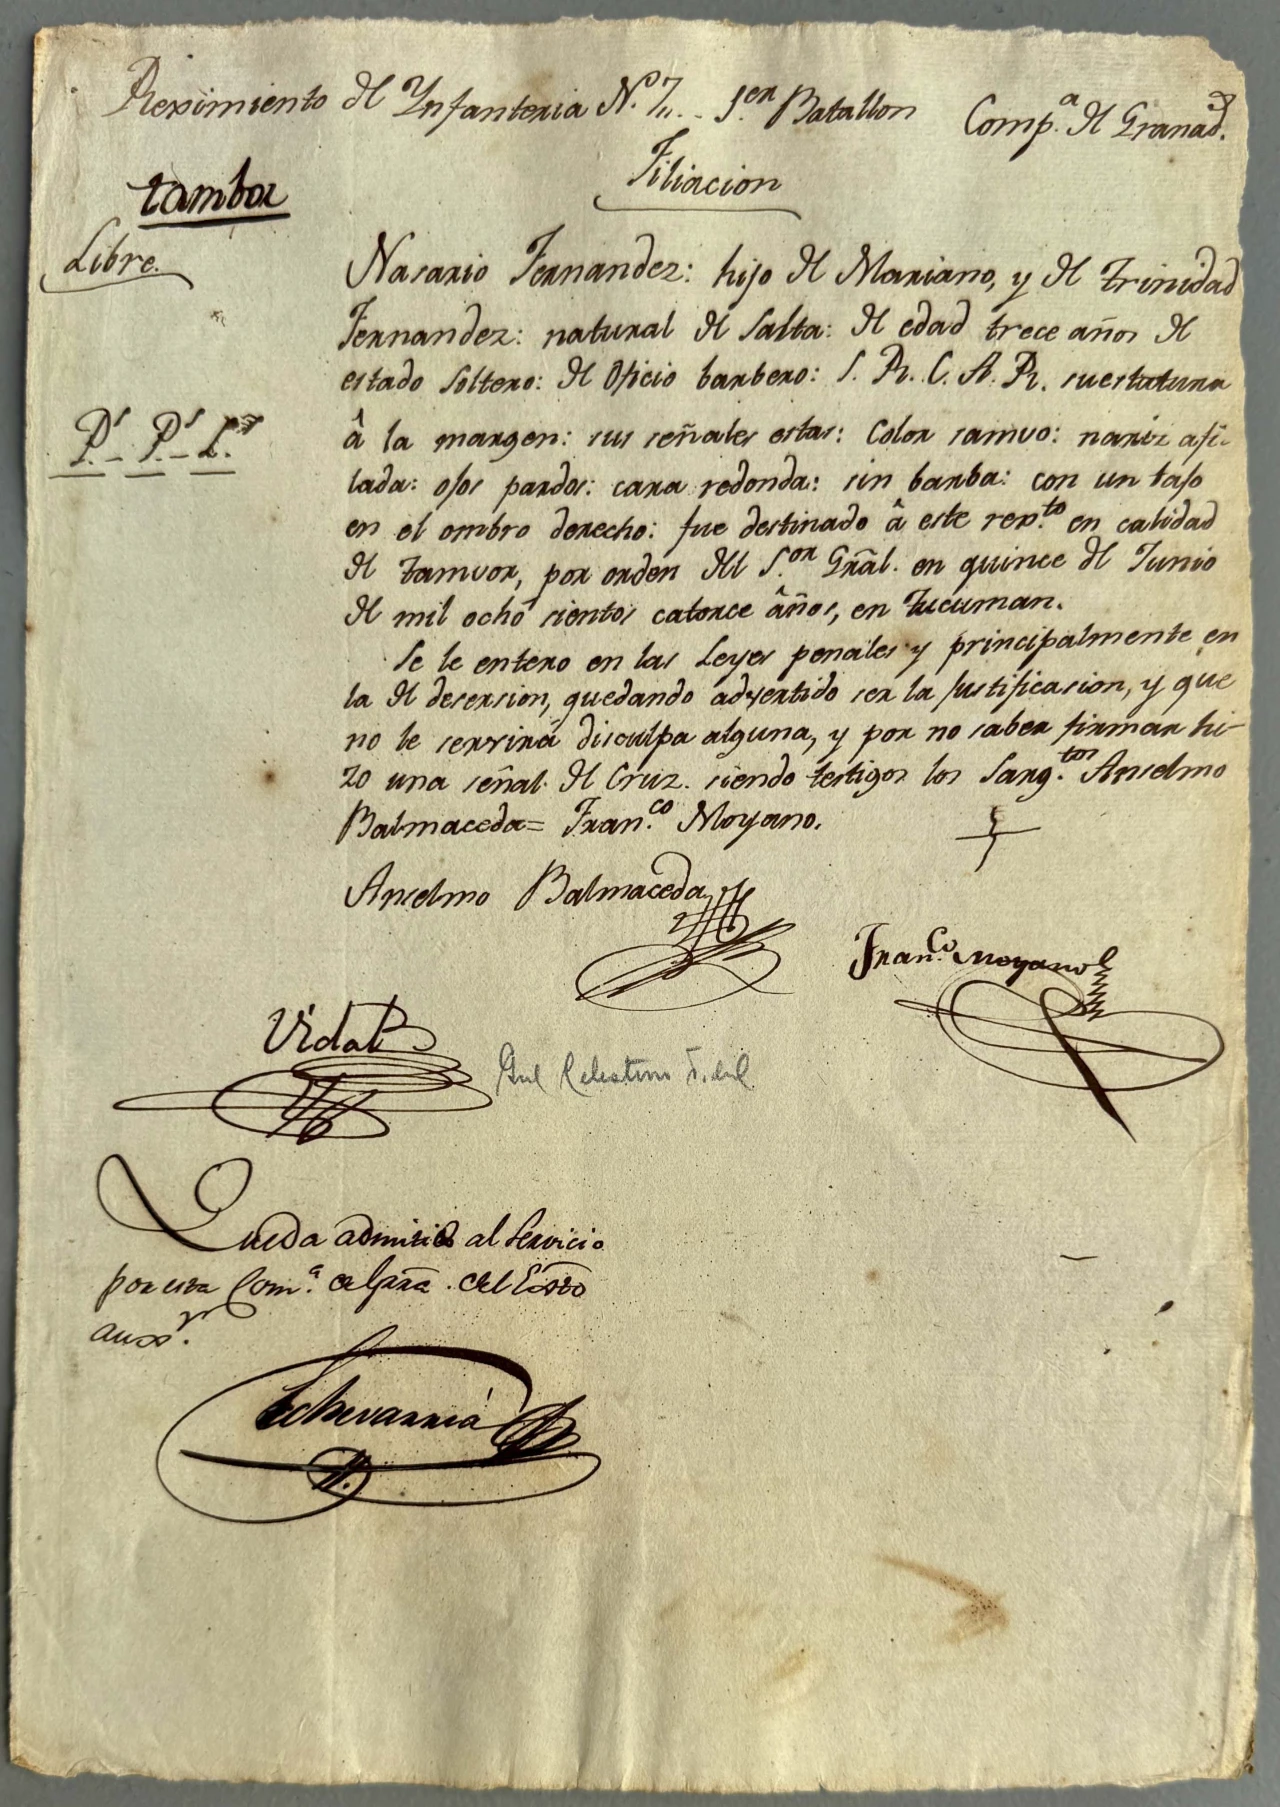 Reximiento de Ynfanteria N.º 7,, .. 1.er Batallon Comp.ª de Granad.s
Filiacion
tambor
Libre.
Nasario Fernandez: hijo de Mariano, y de Trinidad
Fernandez: natural de Salta: de edad trece años de
estado Soltero: de Oficio barbero: S. R. C. A. R. su estatura
P.s - P.s L.s
â la margen: sus señales estas: Color samvo: nariz afi-
lada: ojos pardos: cara redonda: sin barba: con un tajo
en el ombro derecho: fue destinado â este rex.to en calidad
de Tamvor, por orden del S.or Grâl. en quince de Junio
de mil ocho sientos catorce âños, en Tucuman.
Se le entero en las Leyes penales y principalmente en
la de desersion, quedando advertido ser la Justificasion, y que
no le servirá disculpa alguna, y por no saber firmar hi-
zo una señal de Cruz. siendo testigos los Sarg.tos Anselmo
Balmaceda = Fran.co Moyano.
Anselmo Balmaceda
Fran.co Moyano
Vidal
Celestino Vidal
Queda admitido al Servicio
por esta Com.ª de Grrã. del Exto
aux.r
Echevarria